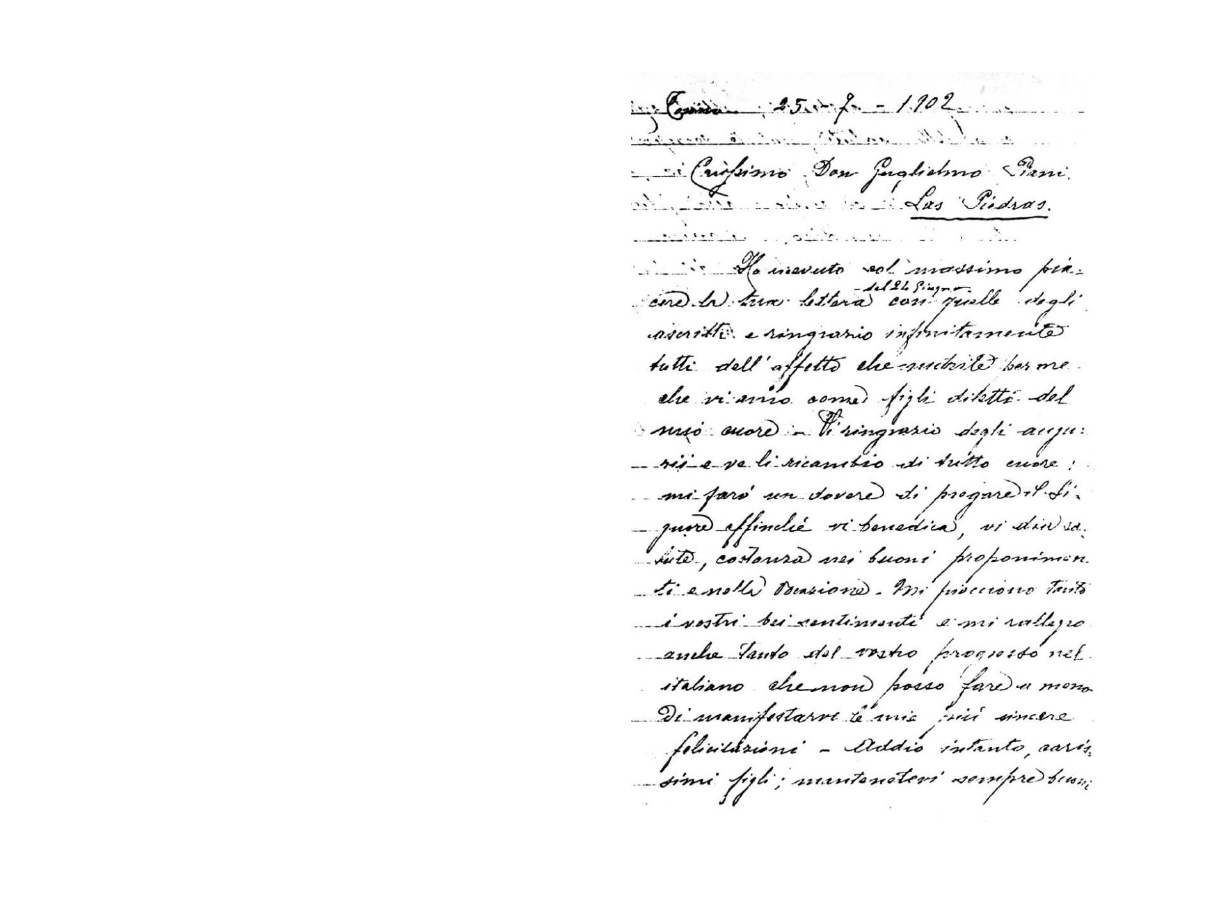 Torino 25-7-1902
Carissimo Don Guglielmo Piani.
Las Piedras.
Ho ricevuto col massimo pia-
del 24 Giugno
cere la tua lettera con quelle degli
ascritti e ringrazio infinitamente
tutti dell'affetto che nutrite per me
che vi amo come figli diletti del
mio cuore - Vi ringrazio degli augu-
rii e ve li ricambio di tutto cuore;
mi farò un dovere di pregare il Si-
gnore affinché vi benedica, vi dia sa-
lute, costanza nei buoni proponimen-
ti e nella vocazione. Mi piacciono tanto
i vostri bei sentimenti e mi rallegro
anche tanto del vostro progresso nel
italiano che non posso fare a meno
di manifestarvi le mie più sincere
felicitazioni - Addio intanto, caris-
simi figli; mantenetevi sempre buoni